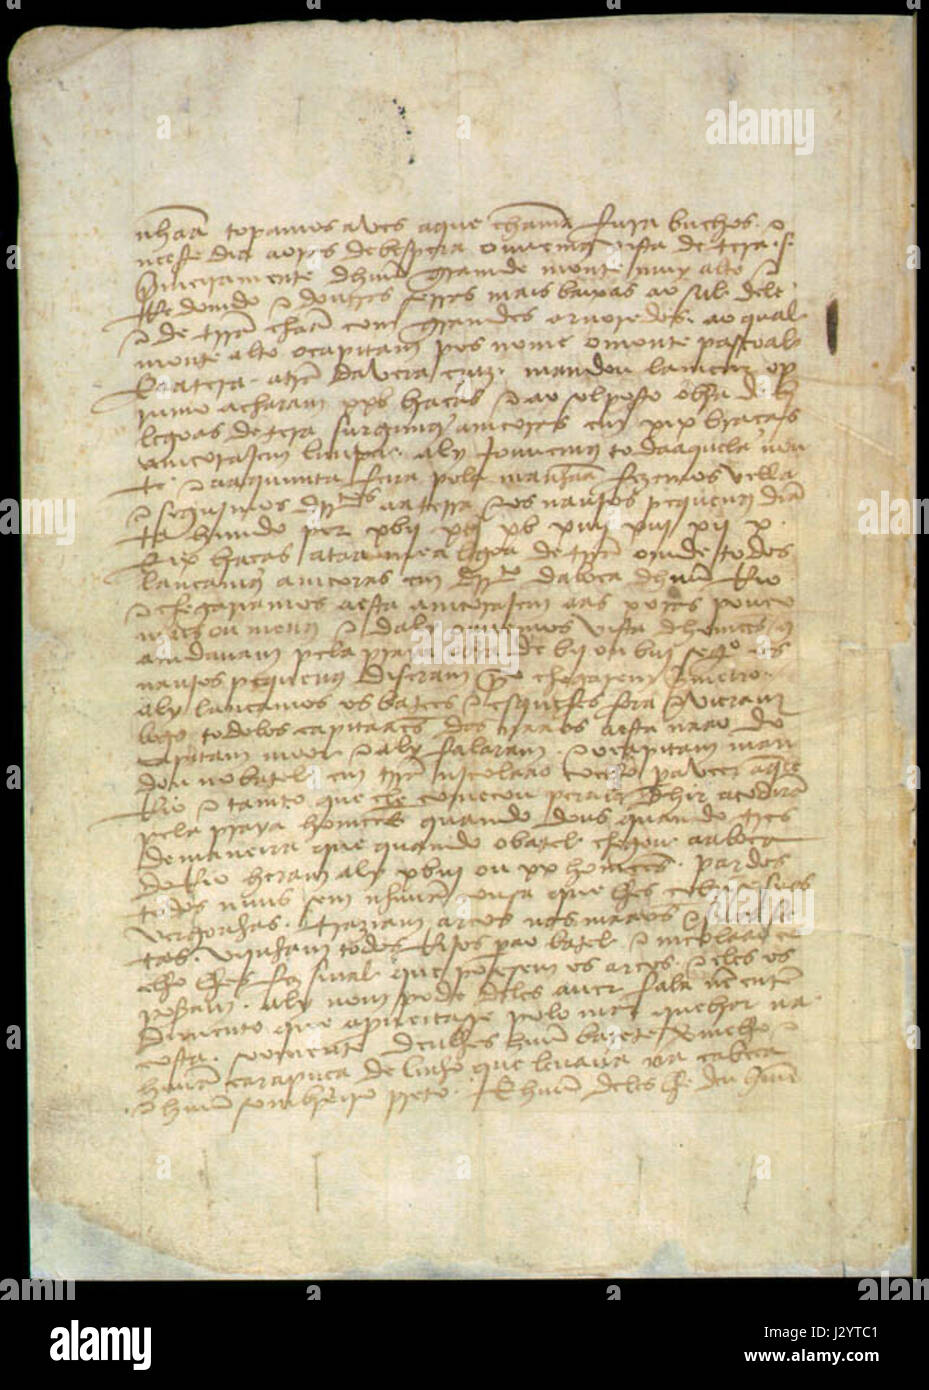 nhaã topamos aves aque chamã fura buchos. e
neeste dia aoras de bespera ouuemos vista de tera .s.
primeiramente dhuũ gramde monte muy alto. e
rredomdo e doutras serras mais baixas ao sul dele
e de trrã chaã com grandes aruoredos. ao qual
monte alto ocapitam pos nome omonte pascoal
E aatera. atrrã davera cruz. mandou lamcar op
rumo acharam xxb bracas e ao sol posto obra de bj
legoas de tera surgimos amcoras em xix bracas
amcorajem limpa. aly jouuemos todaaquela nou
te. e aaquimta feira pola manhaã fezemos vella
e seguimos drtos aaterra e os nauios pequenos diã
te himdo per xbij xbj xb xiiij xiij xij x.
e ix bracas ataa mea legoa de trrã omde todos
lancamos amcoras em drto daboca dhuũ Rio
e chegariamos aesta amcorajem aas x oras pouco
mais ou menos e daly ouuemos vista dhomeẽs q
amdauam pela praya obra de bij ou biij segº os
nauios pequenos diseram por chegarem primeiro.
aly lancamos os batees e esquifes fora e vieram
logo todolos capitaães das naaos aesta naao do
capitam moor e aly falaram. e ocapitam man
dou no batel em trrã nicolaao coelho pa veer aqle
Rio e tamto que ele comecou pera la dhir acodirã
pela praya homeẽs quando dous quando tres
de maneira que quando obatel chegou aaboca
do Rio heram aly xbiij ou xx homeẽs. pardos
todos nuus sem nhuũa cousa que lhes cobrise suas
vergonhas. traziam arcos nas maãos e suas see
tas. vijnham todos Rijos pao batel e nicolaao co
elho lhes fez sinal que posesem os arcos. e eles os
poseram. aly nom pode deles auer fala nẽ entẽ
dimento que aproueitase polo mar quebrar na
costa. soomente deulhes huũ barete vermelho e
huũa carapuca de linho que leuaua na cabeca
e huũ sombreiro preto. E huũ deles lhe deu huũ